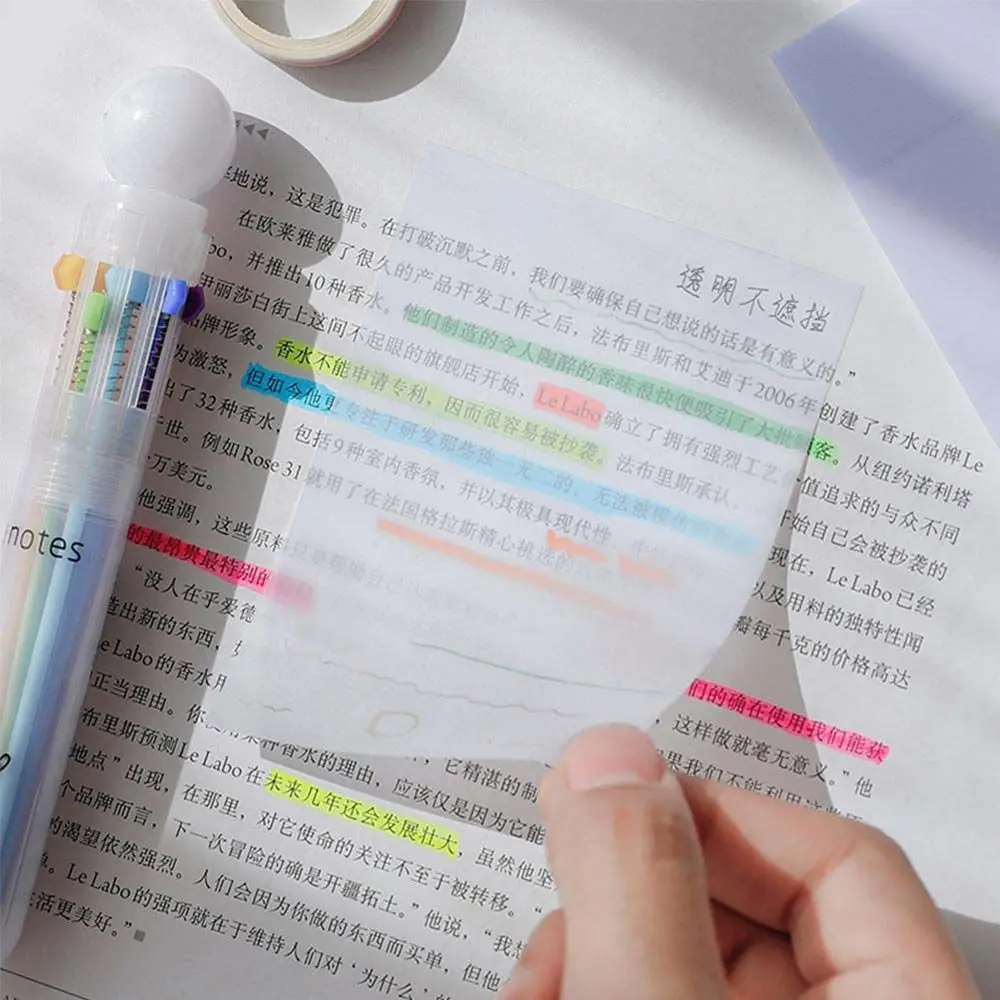 透明不遮挡
地说，这是犯罪。在打破沉默之前，我们要确保自己想说的话是有意义的。”
在欧莱雅做了很久的产品开发工作之后，法布里斯和艾迪于2006年创建了香水品牌Le
bo，并推出10种香水。他们制造的令人陶醉的香味很快便吸引了大批顾客。从纽约诺利塔
伊丽莎白街上这间不起眼的旗舰店开始，Le Labo确立了拥有强烈工艺 值追求的与众不同
品牌形象。香水不能申请专利，因而很容易被抄袭。法布里斯承认， 开始自己会被抄袭的
为激怒，但如今他更专注于研发那些独一无二的、无法被模仿 现在，Le Labo已经
出了32种香水，包括9种室内香氛，并以其极具现代性、 以及用料的独特性闻
世。例如Rose 31就用了在法国格拉斯精心挑选的 瓣每千克的价格高达
万美元。
他强调，这些原料 们的确在使用我们能获
的最昂贵最特别的 这样做就毫无意义。”他
“没人在乎爱德 果我们不能利用这些
造出新的东西，
Le Labo的香水用 它精湛的制
正当理由。你 种香水的理由，应该仅是因为它能
布里斯预测Le Labo在未来几年还会发展壮大，虽然他坚
地点”出现，在那里，对它使命的关注不至于被转移。“
个品牌而言，下一次冒险的确是开疆拓土。”他说，“我想
的渴望依然强烈。人们会因为你做的东西而买单，但他
Le Labo的强项就在于维持人们对‘为什么’的
活更美好。”
notes